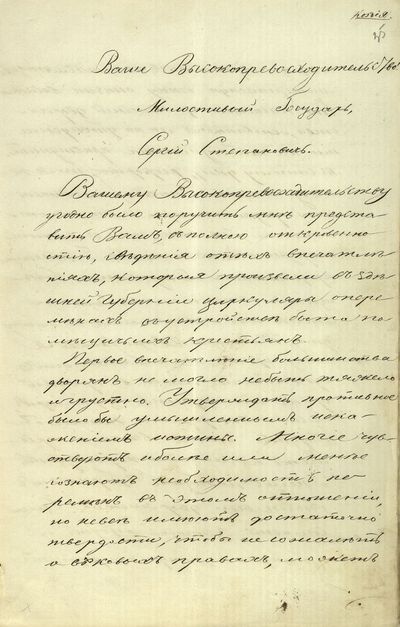 Копія.
Ваше Высокопревосходительство
Милостивый Государь,
Сергій Степановичъ.
Вашему Высокопревосходительству
угодно было поручить мнѣ предста
вить Вамъ, съ полною откровенно
стію, свѣдѣнія о тѣхъ впечатлѣ
ніяхъ, которыя произвели въ здѣ
шней Губерніи циркуляры о пере
мѣнахъ въ устройствѣ быта по
мѣщичьихъ крестьянъ.
Первое впечатлѣніе большинства
дворянъ не могло не быть тяжело
и грустно. Утверждать противное
было бы умышленнымъ иска
женіемъ истины. Многіе чув
ствуютъ и болѣе или менѣе
сознаютъ необходимость пе
ремѣнъ въ этомъ отношеніи,
но не всѣ имѣютъ достаточно
твердости, чтобы не сожалѣть
о вѣковыхъ правахъ, можетъ